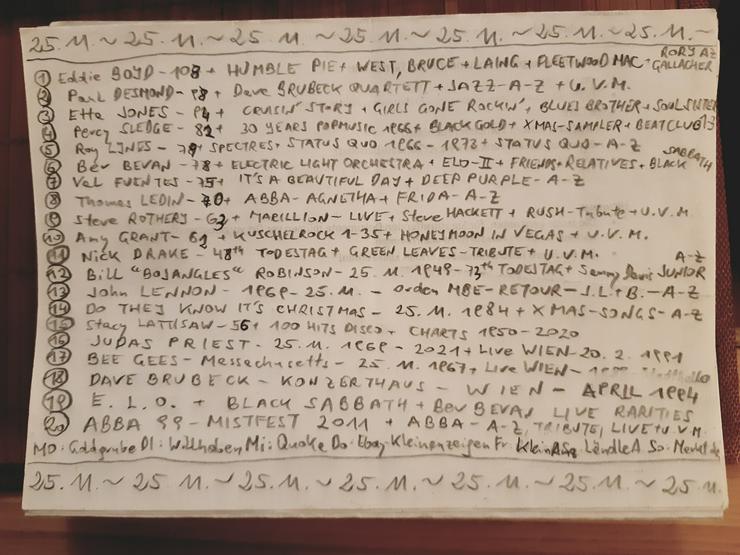 25. 11. ~ 25. 11. ~ 25. 11. ~ 25. 11. ~ 25. 11. ~ 25. 11. ~ 25. 11. ~
① Eddie BOYD - 108 + HUMBLE PIE + WEST, BRUCE + LAING + FLEETWOOD MAC + RORY GALLAGHER A-Z
② Paul DESMOND - 98 + Dave BRUBECK QUARTETT + JAZZ-A-Z + U.V.M.
③ Etta JONES - 94 + CRUSIN' STORY + GIRLS GONE ROCKIN' + BLUES BROTHER + SOUL SISTER
④ Percy SLEDGE - 82 + 30 YEARS POPMUSIC 1966 + BLACK GOLD + XMAS-SAMPLER + BEATCLUB 1-3
⑤ Roy LINES - 79 + SPECTRES + STATUS QUO 1966 - 1973 + STATUS QUO - A-Z
⑥ Bev BEVAN - 78 + ELECTRIC LIGHT ORCHESTRA + ELO-II + FRIENDS + RELATIVES + BLACK SABBATH
⑦ Val FUENTES - 75 + IT'S A BEAUTIFUL DAY + DEEP PURPLE - A-Z
⑧ Thomas LEDIN - 70 + ABBA - AGNETHA + FRIDA - A-Z
⑨ Steve ROTHERY - 63 + MARILLION - LIVE + Steve HACKETT + RUSH - Tribute + U.V.M.
⑩ Amy GRANT - 62 + KUSCHELROCK 1-35 + HONEYMOON IN VEGAS + U.V.M.
⑪ NICK DRAKE - 48th TODESTAG + GREEN LEAVES - TRIBUTE + U.V.M.
⑫ Bill "BOJANGLES" ROBINSON - 25. 11. 1949 - 73th TODESTAG + Sammy Davis JUNIOR A-Z
⑬ John LENNON - 1969 - 25. 11. - Orden MBE - RETOUR - J.L. + B. - A-Z
⑭ DO THEY KNOW IT'S CHRISTMAS - 25. 11. 1984 + XMAS-SONGS - A-Z
⑮ Stacy LATTISAW - 56 + 100 HITS DISCO + CHARTS 1950 - 2020
⑯ JUDAS PRIEST - 25. 11. 1969 - 2021 + Live WIEN - 20. 2. 1991
⑰ BEE GEES - Massachusetts - 25. 11. 1967 + Live WIEN -
⑱ DAVE BRUBECK - KONZERTHAUS - WIEN - APRIL 1994
⑲ E. L. O. + BLACK SABBATH + Bev BEVAN LIVE RARITIES
⑳ ABBA 99 - MISTFEST 2011 + ABBA - A-Z, TRIBUTE, LIVE + U.V.M.
MO: Goldgrube DI: Willhaben Mi: Quoka Do: Ebay-Kleinanzeigen Fr: Sa: LändleA So:
25. 11. ~ 25. 11. ~ 25. 11. ~ 25. 11. ~ 25. 11. ~ 25. 11. ~ 25. 11.